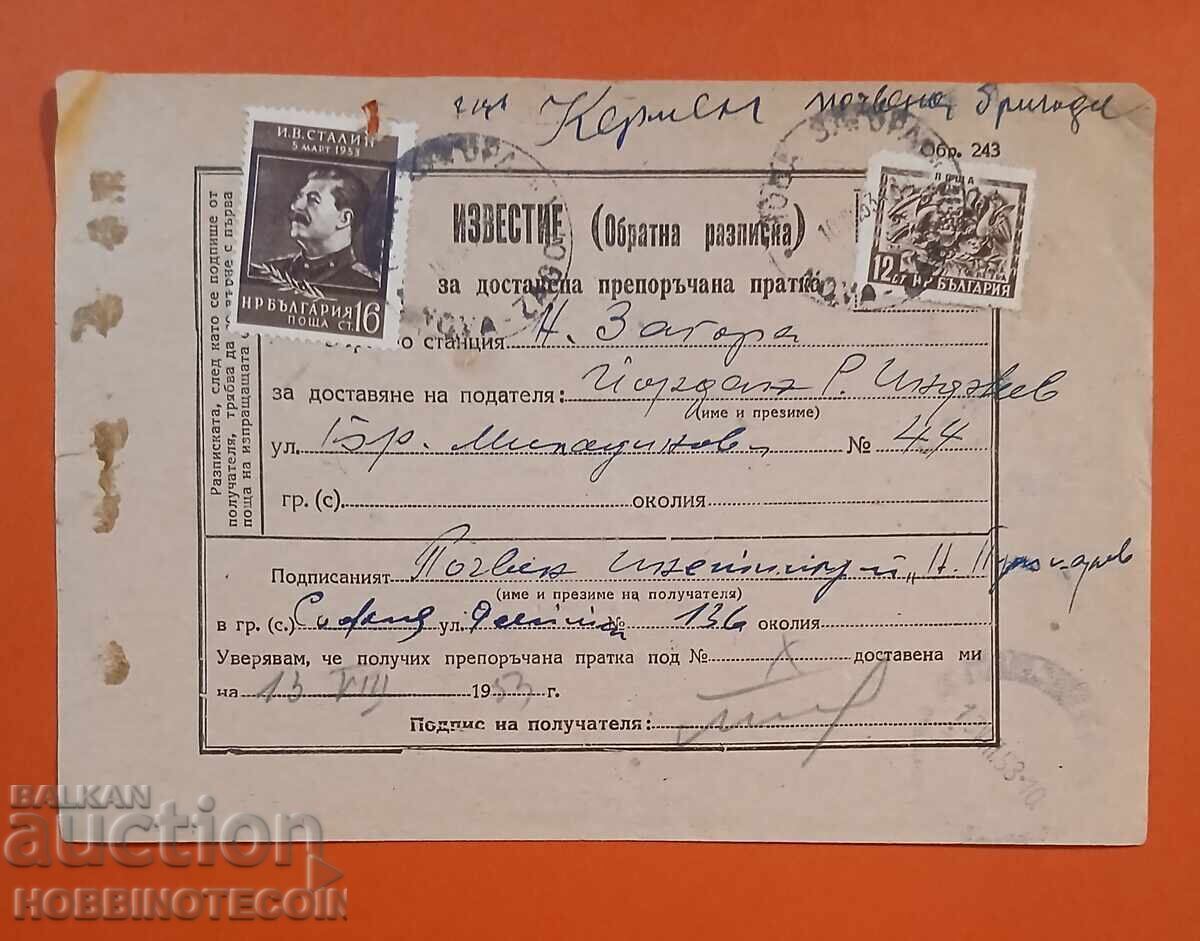 гара Кермен почвена бригада
Обр. 243
И.В.СТАЛИН
5 МАРТ 1953
НР БЪЛГАРИЯ
ПОЩА СТ. 16
ПОЩА
12 СТ НР БЪЛГАРИЯ
NOVA-ZAGORA
Разписката, след като се подпише от
получателя, трябва да се върне с първа
поща на изпращащата
ИЗВЕСТИЕ (Обратна разписка)
за доставена препоръчана пратка
станция Н. Загора
за доставяне на подателя: Йордан Р. Инджев
(име и презиме)
ул. Бр. Миладинови № 44
гр. (с). околия
Подписаният Почвен институт „Н. Пушкаров
(име и презиме на получателя)
в гр. (с.) София ул. № 136 околия
Уверявам, че получих препоръчана пратка под № X доставена ми
на 13 VIII 1953 г.
Подпис на получателя:
BALKAN
auction
HOBBINOTECOIN